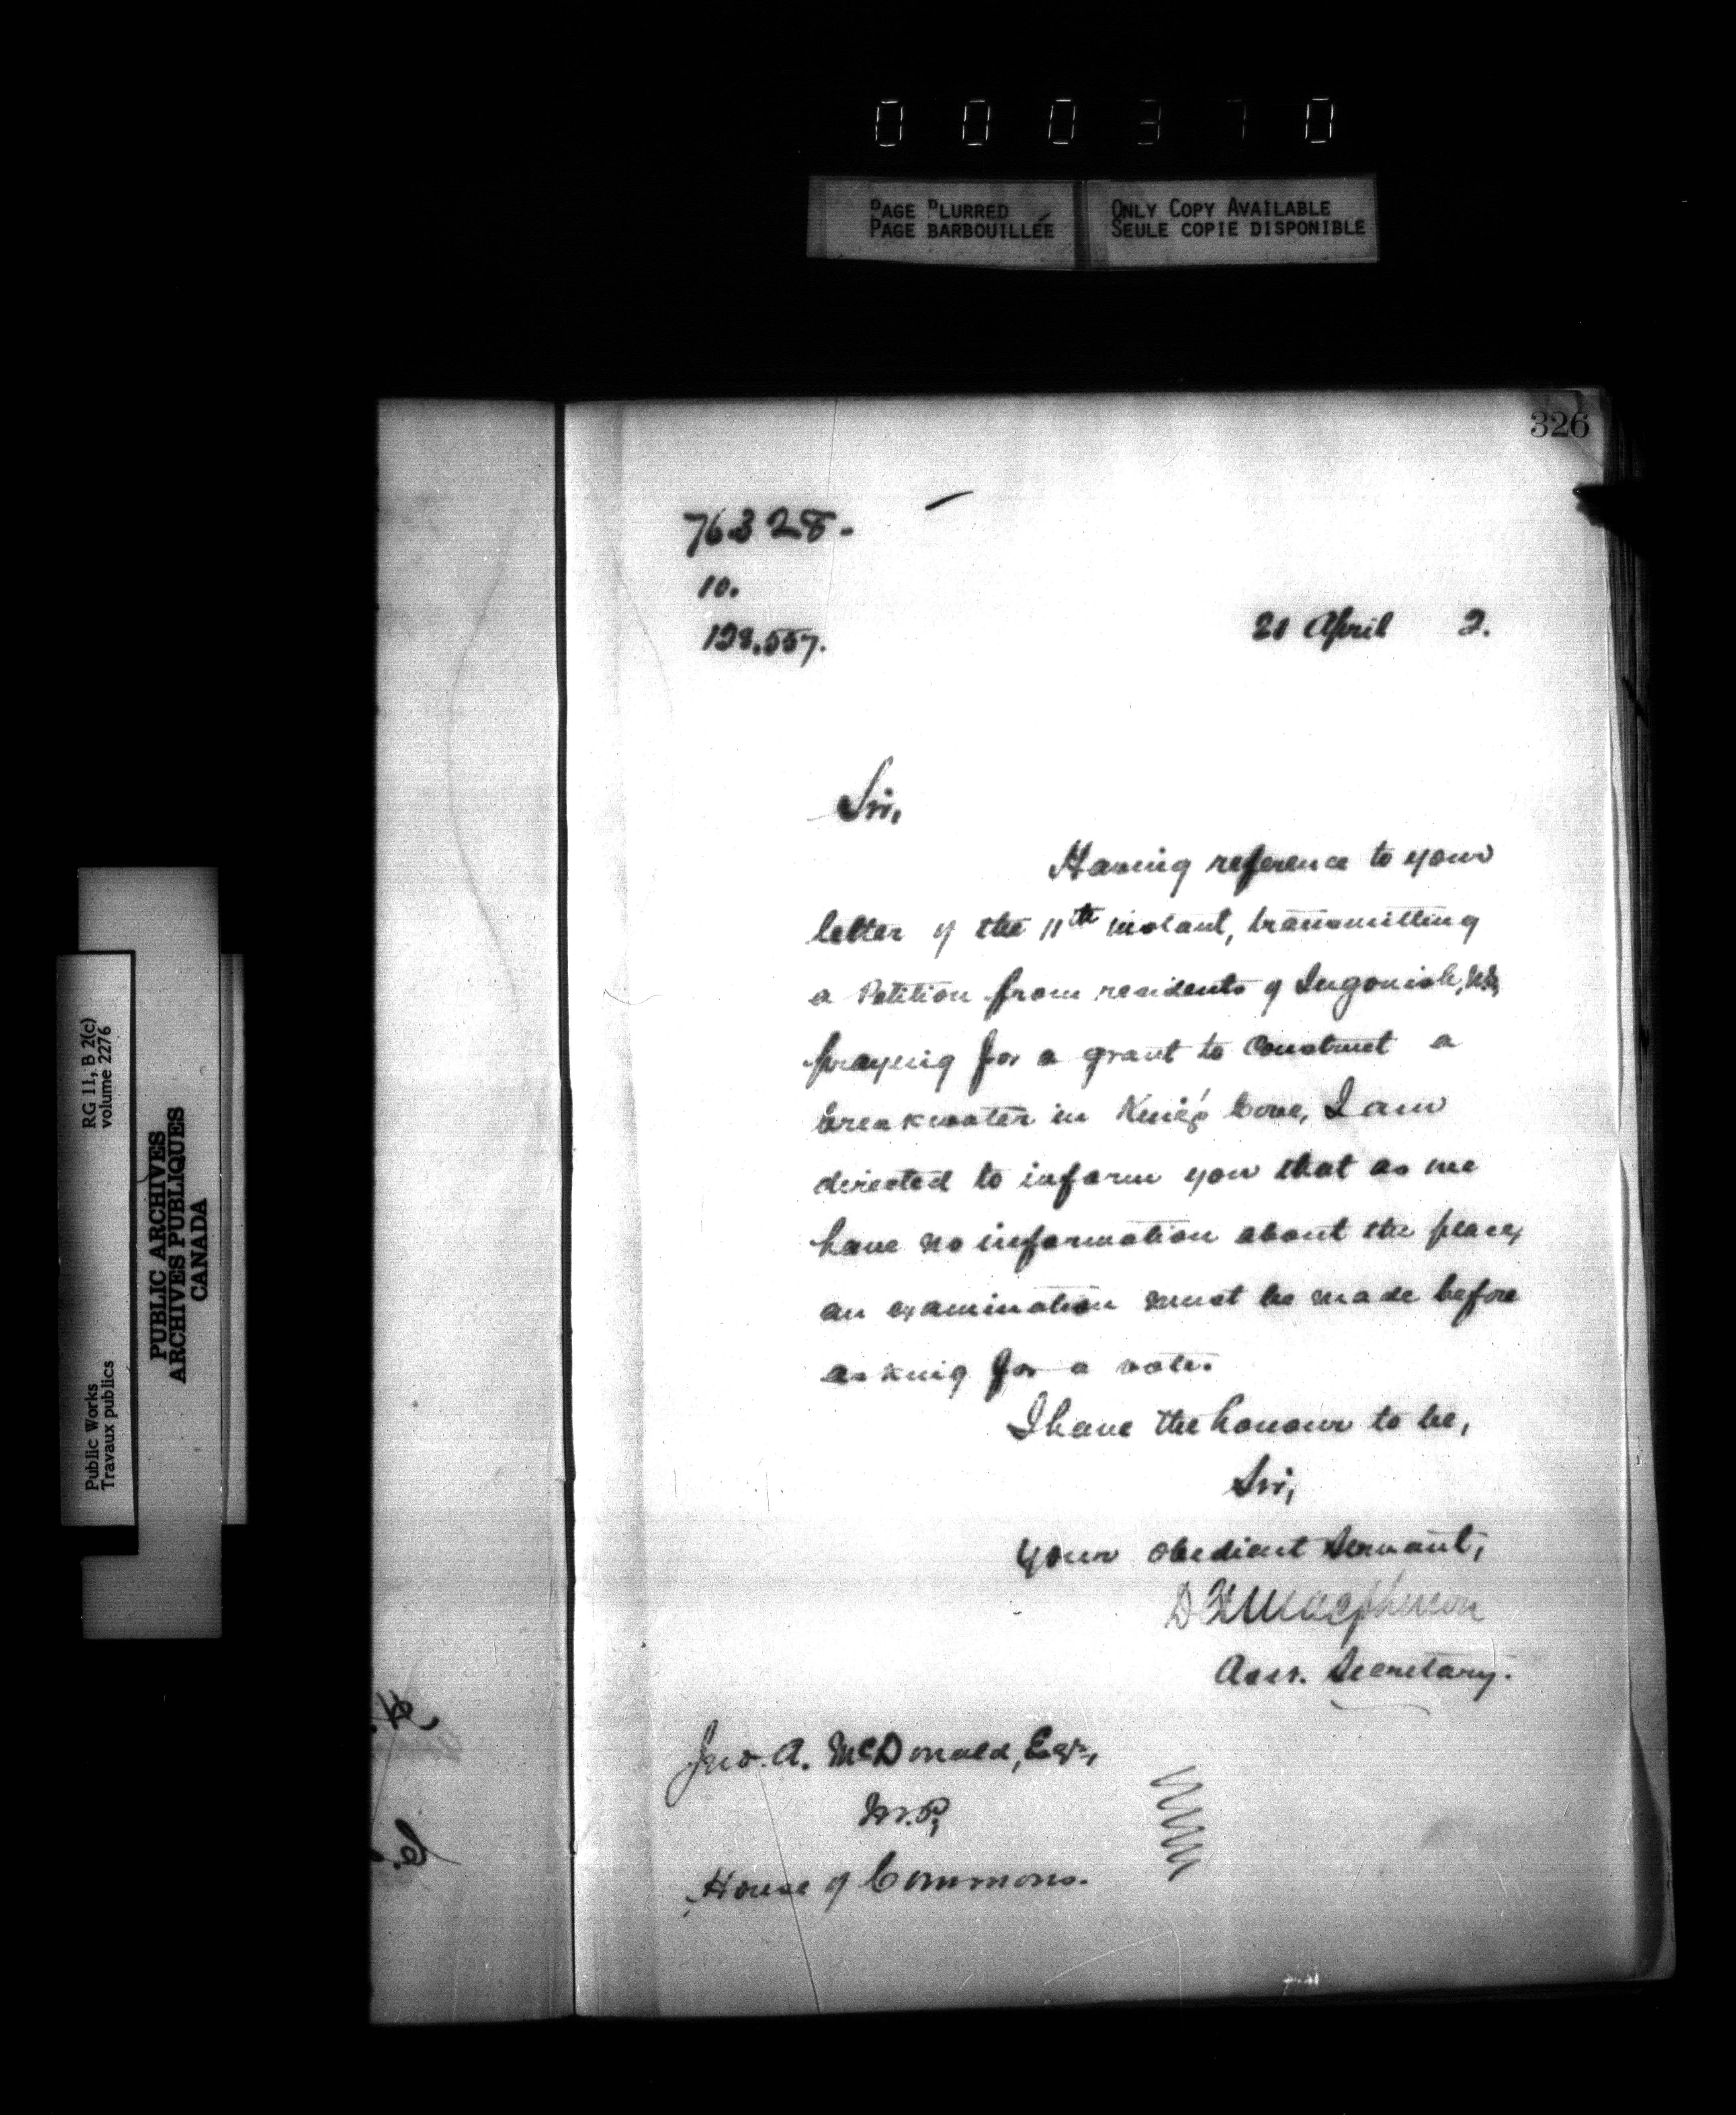 000370
PAGE BLURRED
PAGE BARBOUILLÉE
ONLY COPY AVAILABLE
SEULE COPIE DISPONIBLE
326
76328.
10.
128.557.
21 April 2.
Sir,
Having reference to your
letter of the 11th instant, transmitting
a Petition from residents of Ingonish, N.S.,
praying for a grant to construct a
breakwater in King's Cove, I am
directed to inform you that as we
have no information about the place,
an examination must be made before
asking for a vote.
I have the honour to be,
Sir,
Your obedient servant,
D Macpherson
Asst. Secretary.
Jno. A. McDonald, Esqr.,
M.P.,
House of Commons.
RG 11, B 2(c)
volume 2276
Public Works
Travaux publics
PUBLIC ARCHIVES
ARCHIVES PUBLIQUES
CANADA